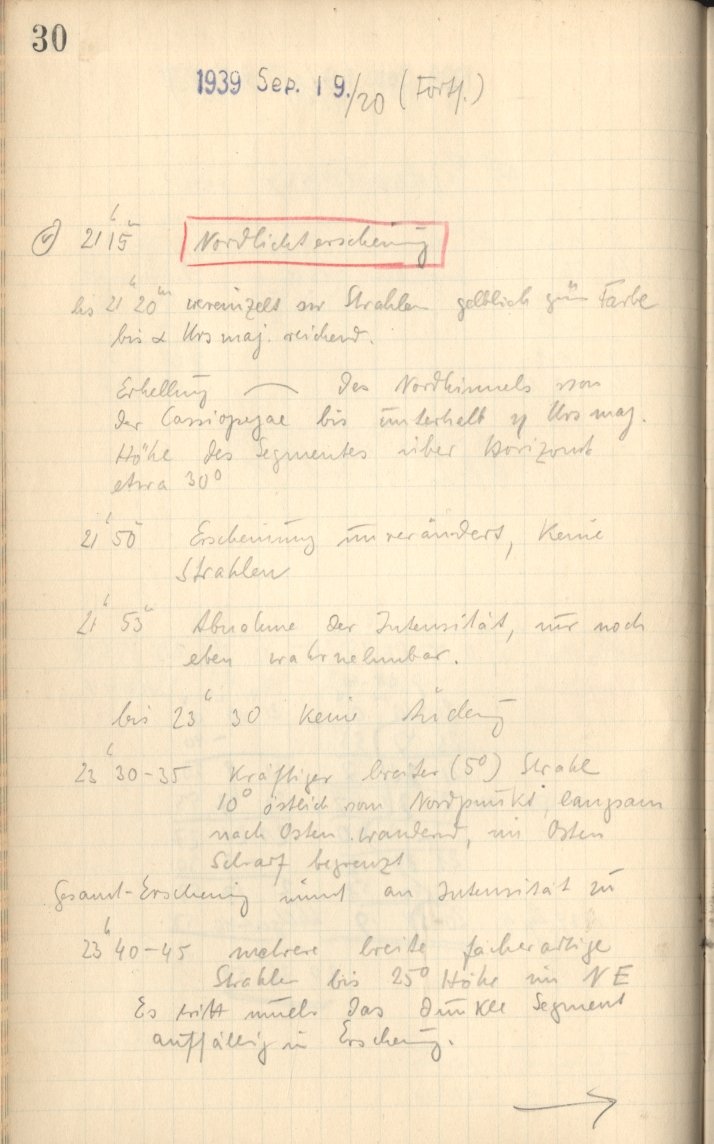 30
1939 Sep. 19./20 (Forts.)
21h 15m Nordlichterscheinung
bis 21h 20m vereinzelt Strahlen gelblich grün Farbe
bis α Urs maj. reichend.
Erhellung des Nordhimmels von
der Cassiopejae bis unterhalb η Urs maj.
Höhe des Segmentes über Horizont
etwa 30°
21h 50m Erscheinung unverändert, keine
Strahlen
21h 53m Abnahme der Intensität, nur noch
eben wahrnehmbar.
bis 23h 30 keine Änderung
23h 30-35 Kräftiger breiter (5°) Strahl
10° östlich vom Nordpunkt, langsam
nach Osten wandernd, im Osten
scharf begrenzt
Gesamt-Erscheinung nimmt an Intensität zu
23h 40-45 mehrere breite fächerartige
Strahlen bis 25° Höhe im NE
Es tritt das dunkle Segment
auffällig in Erscheinung.